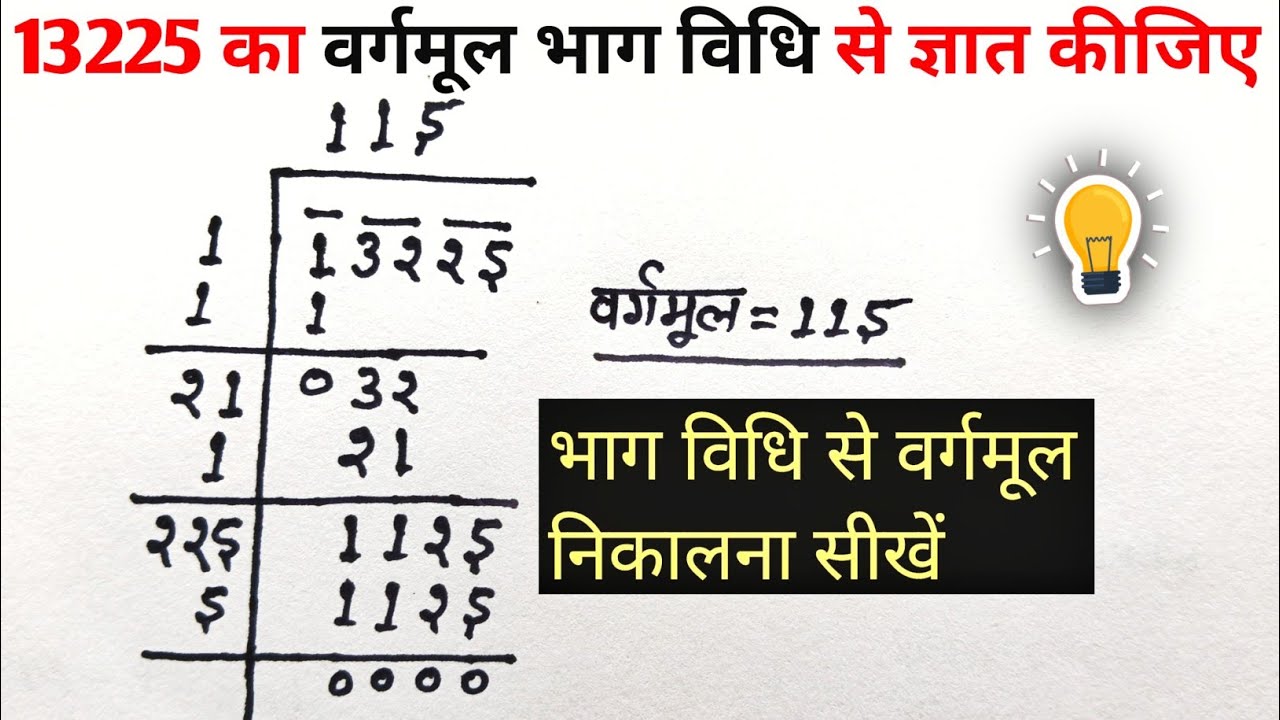 13225 का वर्गमूल भाग विधि से ज्ञात कीजिए
115
1 1 3२ २5
1 1
२1 0 3२
1 २1
२२5 11२5
5 11२5
0000
वर्गमूल = 115
भाग विधि से वर्गमूल
निकालना सीखें